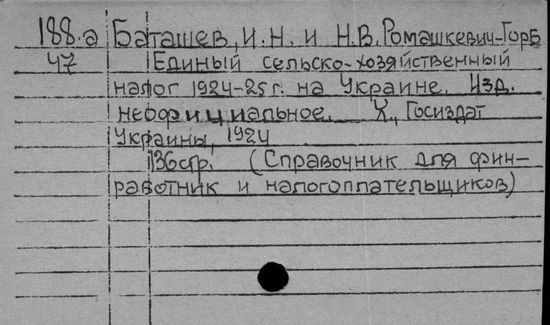 188.а Баташев, И.Н. и Н.В. Ромашкевич-Горб
47 Единый сельско-хозяйственный
налог 1924-25г. на Украине. Изд.
неофициальное. Х., Госиздат
Украины, 1924
136стр. (Справочник для фин-
работник и налогоплательщиков)